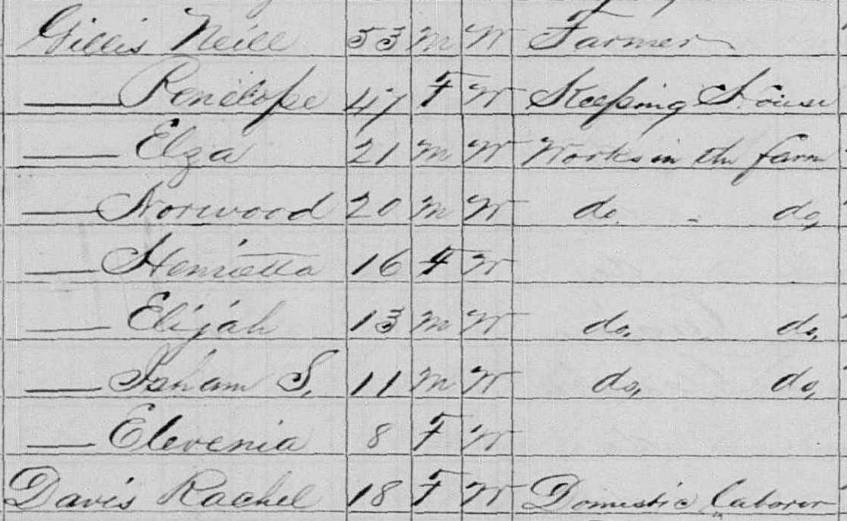 Gillis Neill 53 M W Farmer
—— Penelope 47 F W Keeping House
—— Elza 21 M W Works in the farm
—— Norwood 20 M W do. - do,
—— Henrietta 16 F W
—— Elijah 13 M W do, do,
—— Isham S, 11 M W do, do,
—— Elevenia 8 F W
Davis Rachel 18 F W Domestic Laborer